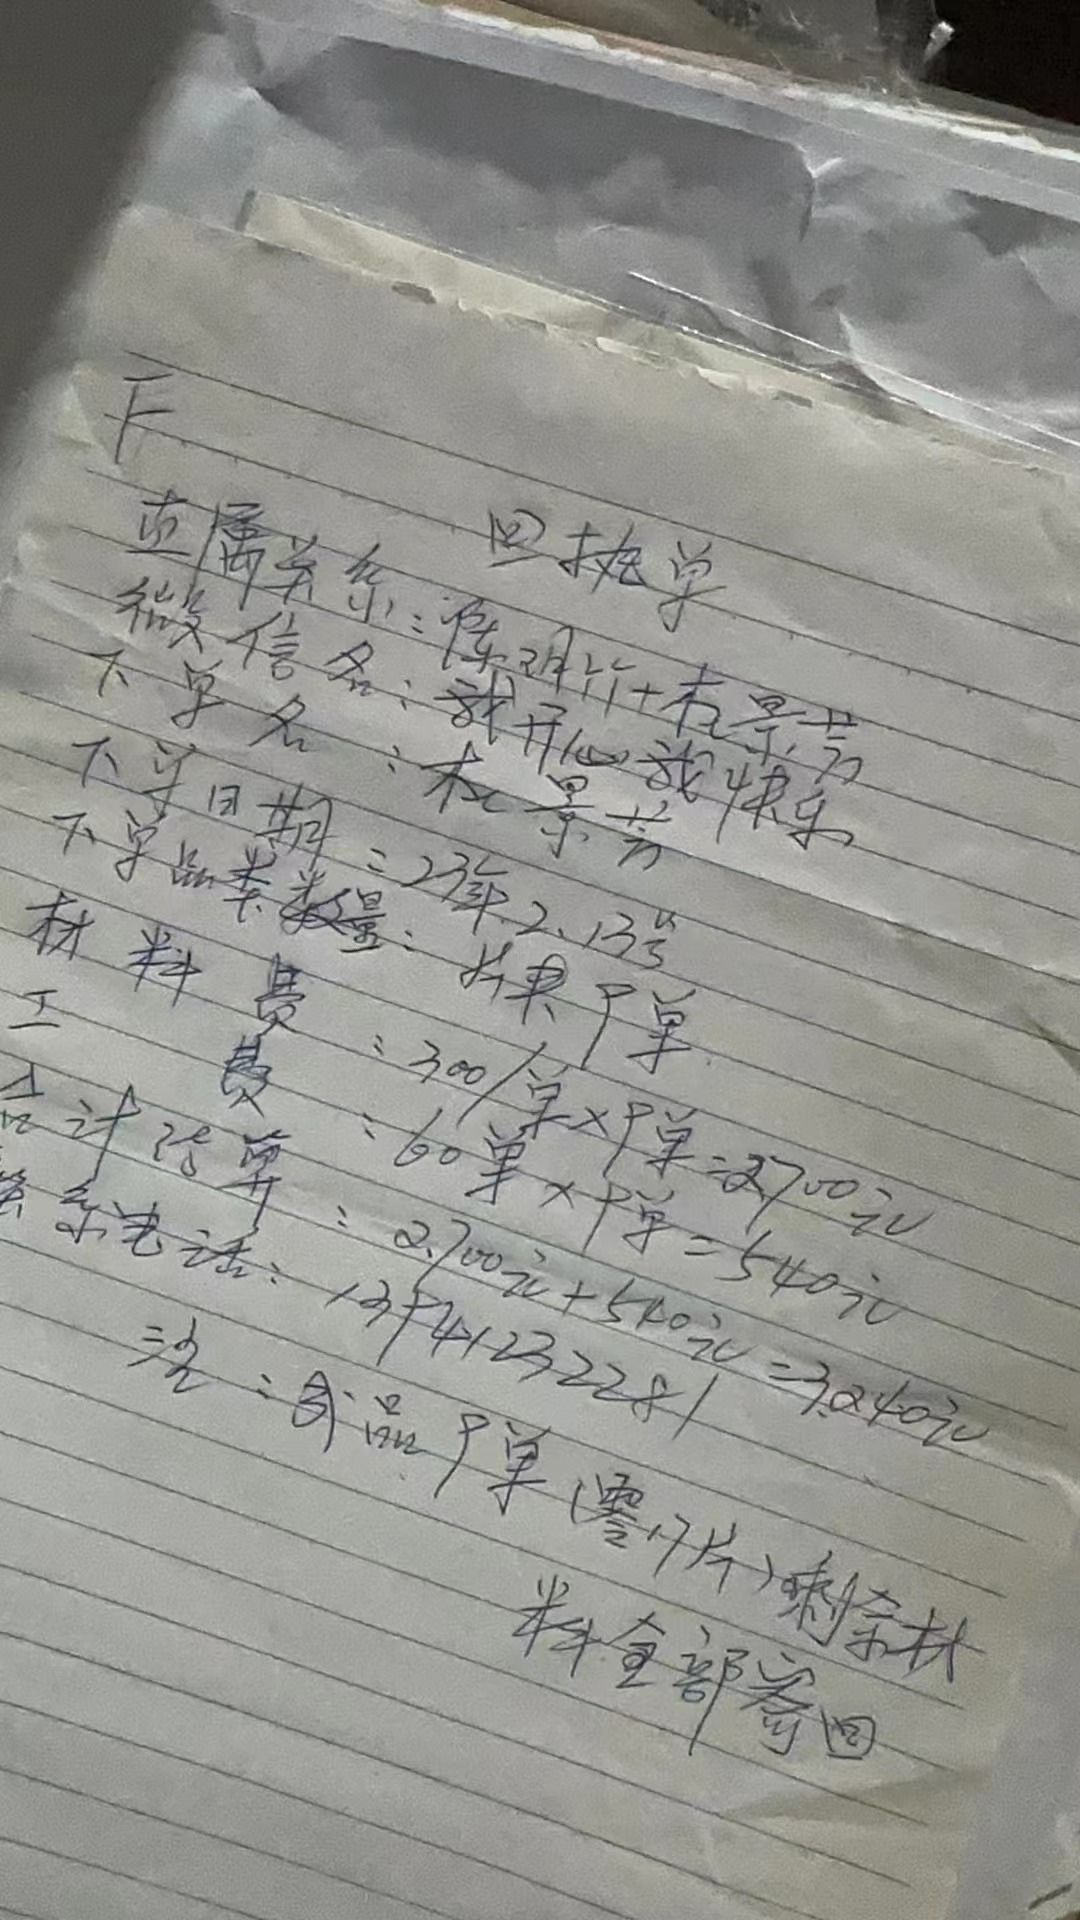 回执单
直属关系:陈玥竹+杜景芳
微信名:我开心我快乐
下单名:杜景芳
下单日期:23年.2.13号
下单品类数量:片果9单.
材料费:300/单×9单=2700元
工费:60单×9单=540元
合计结算:2700元+540元=3240元
联系电话:13941232281
注:成品9单(零17片)剩余材
料全部寄回